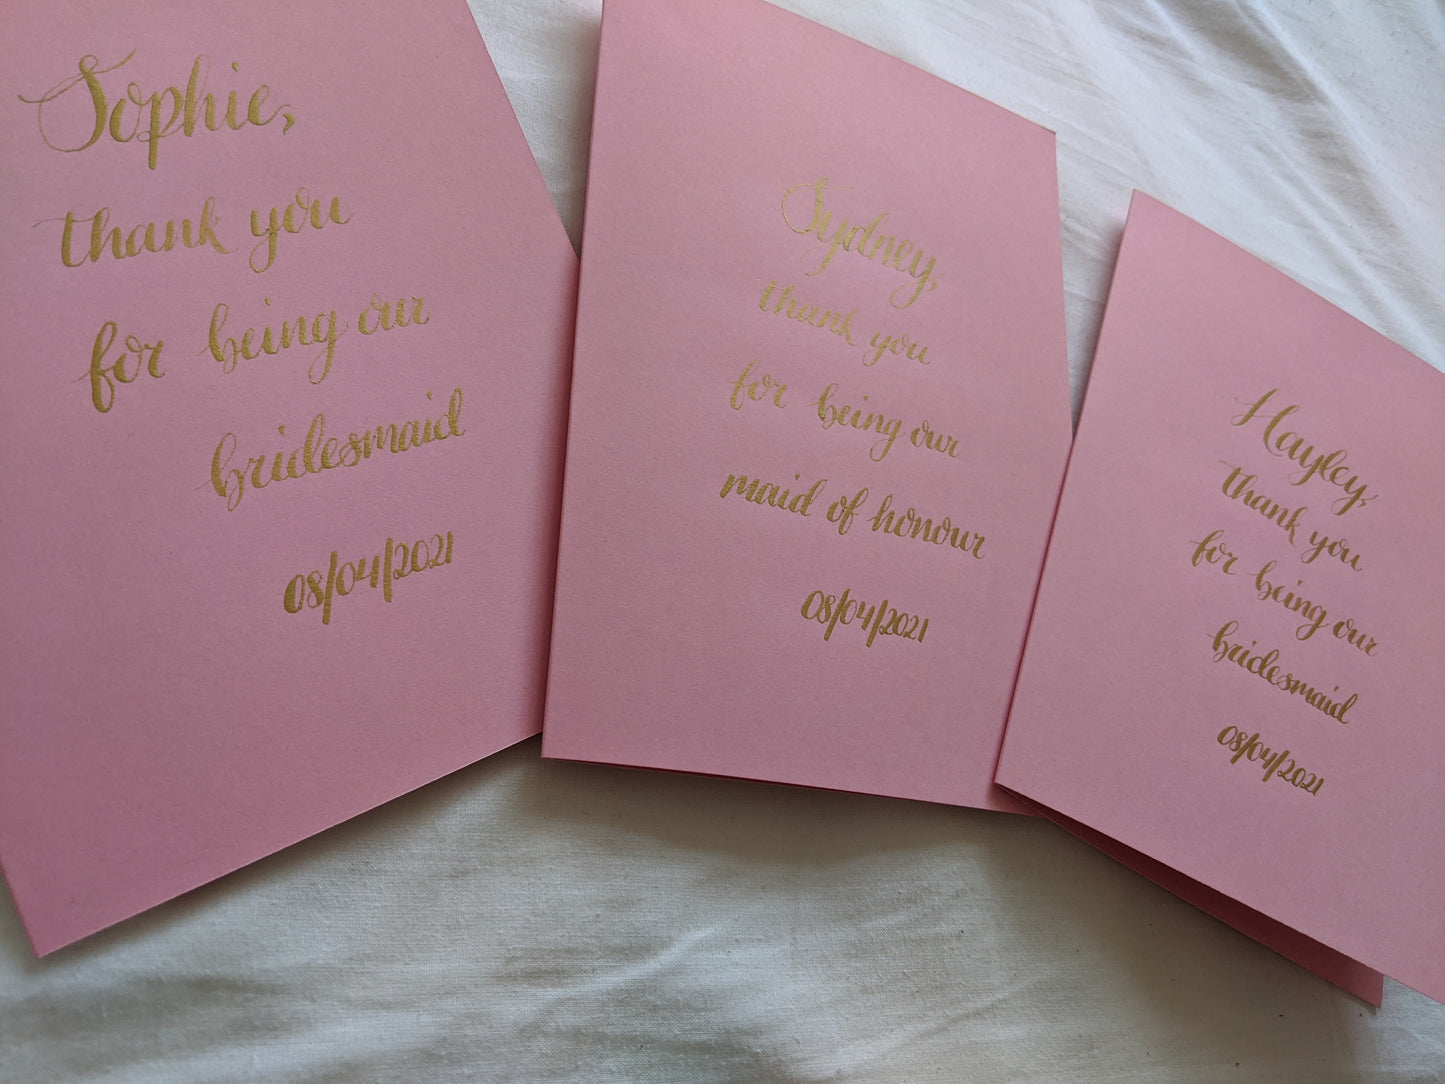 Sophie,
thank you
for being our
bridesmaid
08/04/2021
Sydney,
thank you
for being our
maid of honour
08/04/2021
Hayley,
thank you
for being our
bridesmaid
08/04/2021